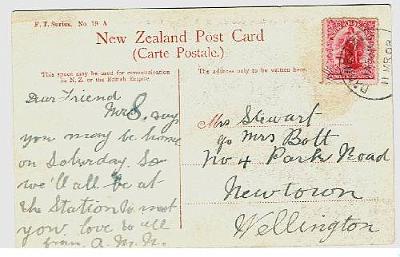 F. T. Series. No. 19 A
New Zealand Post Card
(Carte Postale.)
This space may be used for communication
in N.Z. or the British Empire.
The address only to be written here.
Dear Friend
Mrs S. says
you may be home
on Saturday. So
we'll all be at
the Station to meet
you, love to all
from A. M. N.
Mrs Stewart
go Mrs Bott
No 4 Park Road
Newtown
Wellington